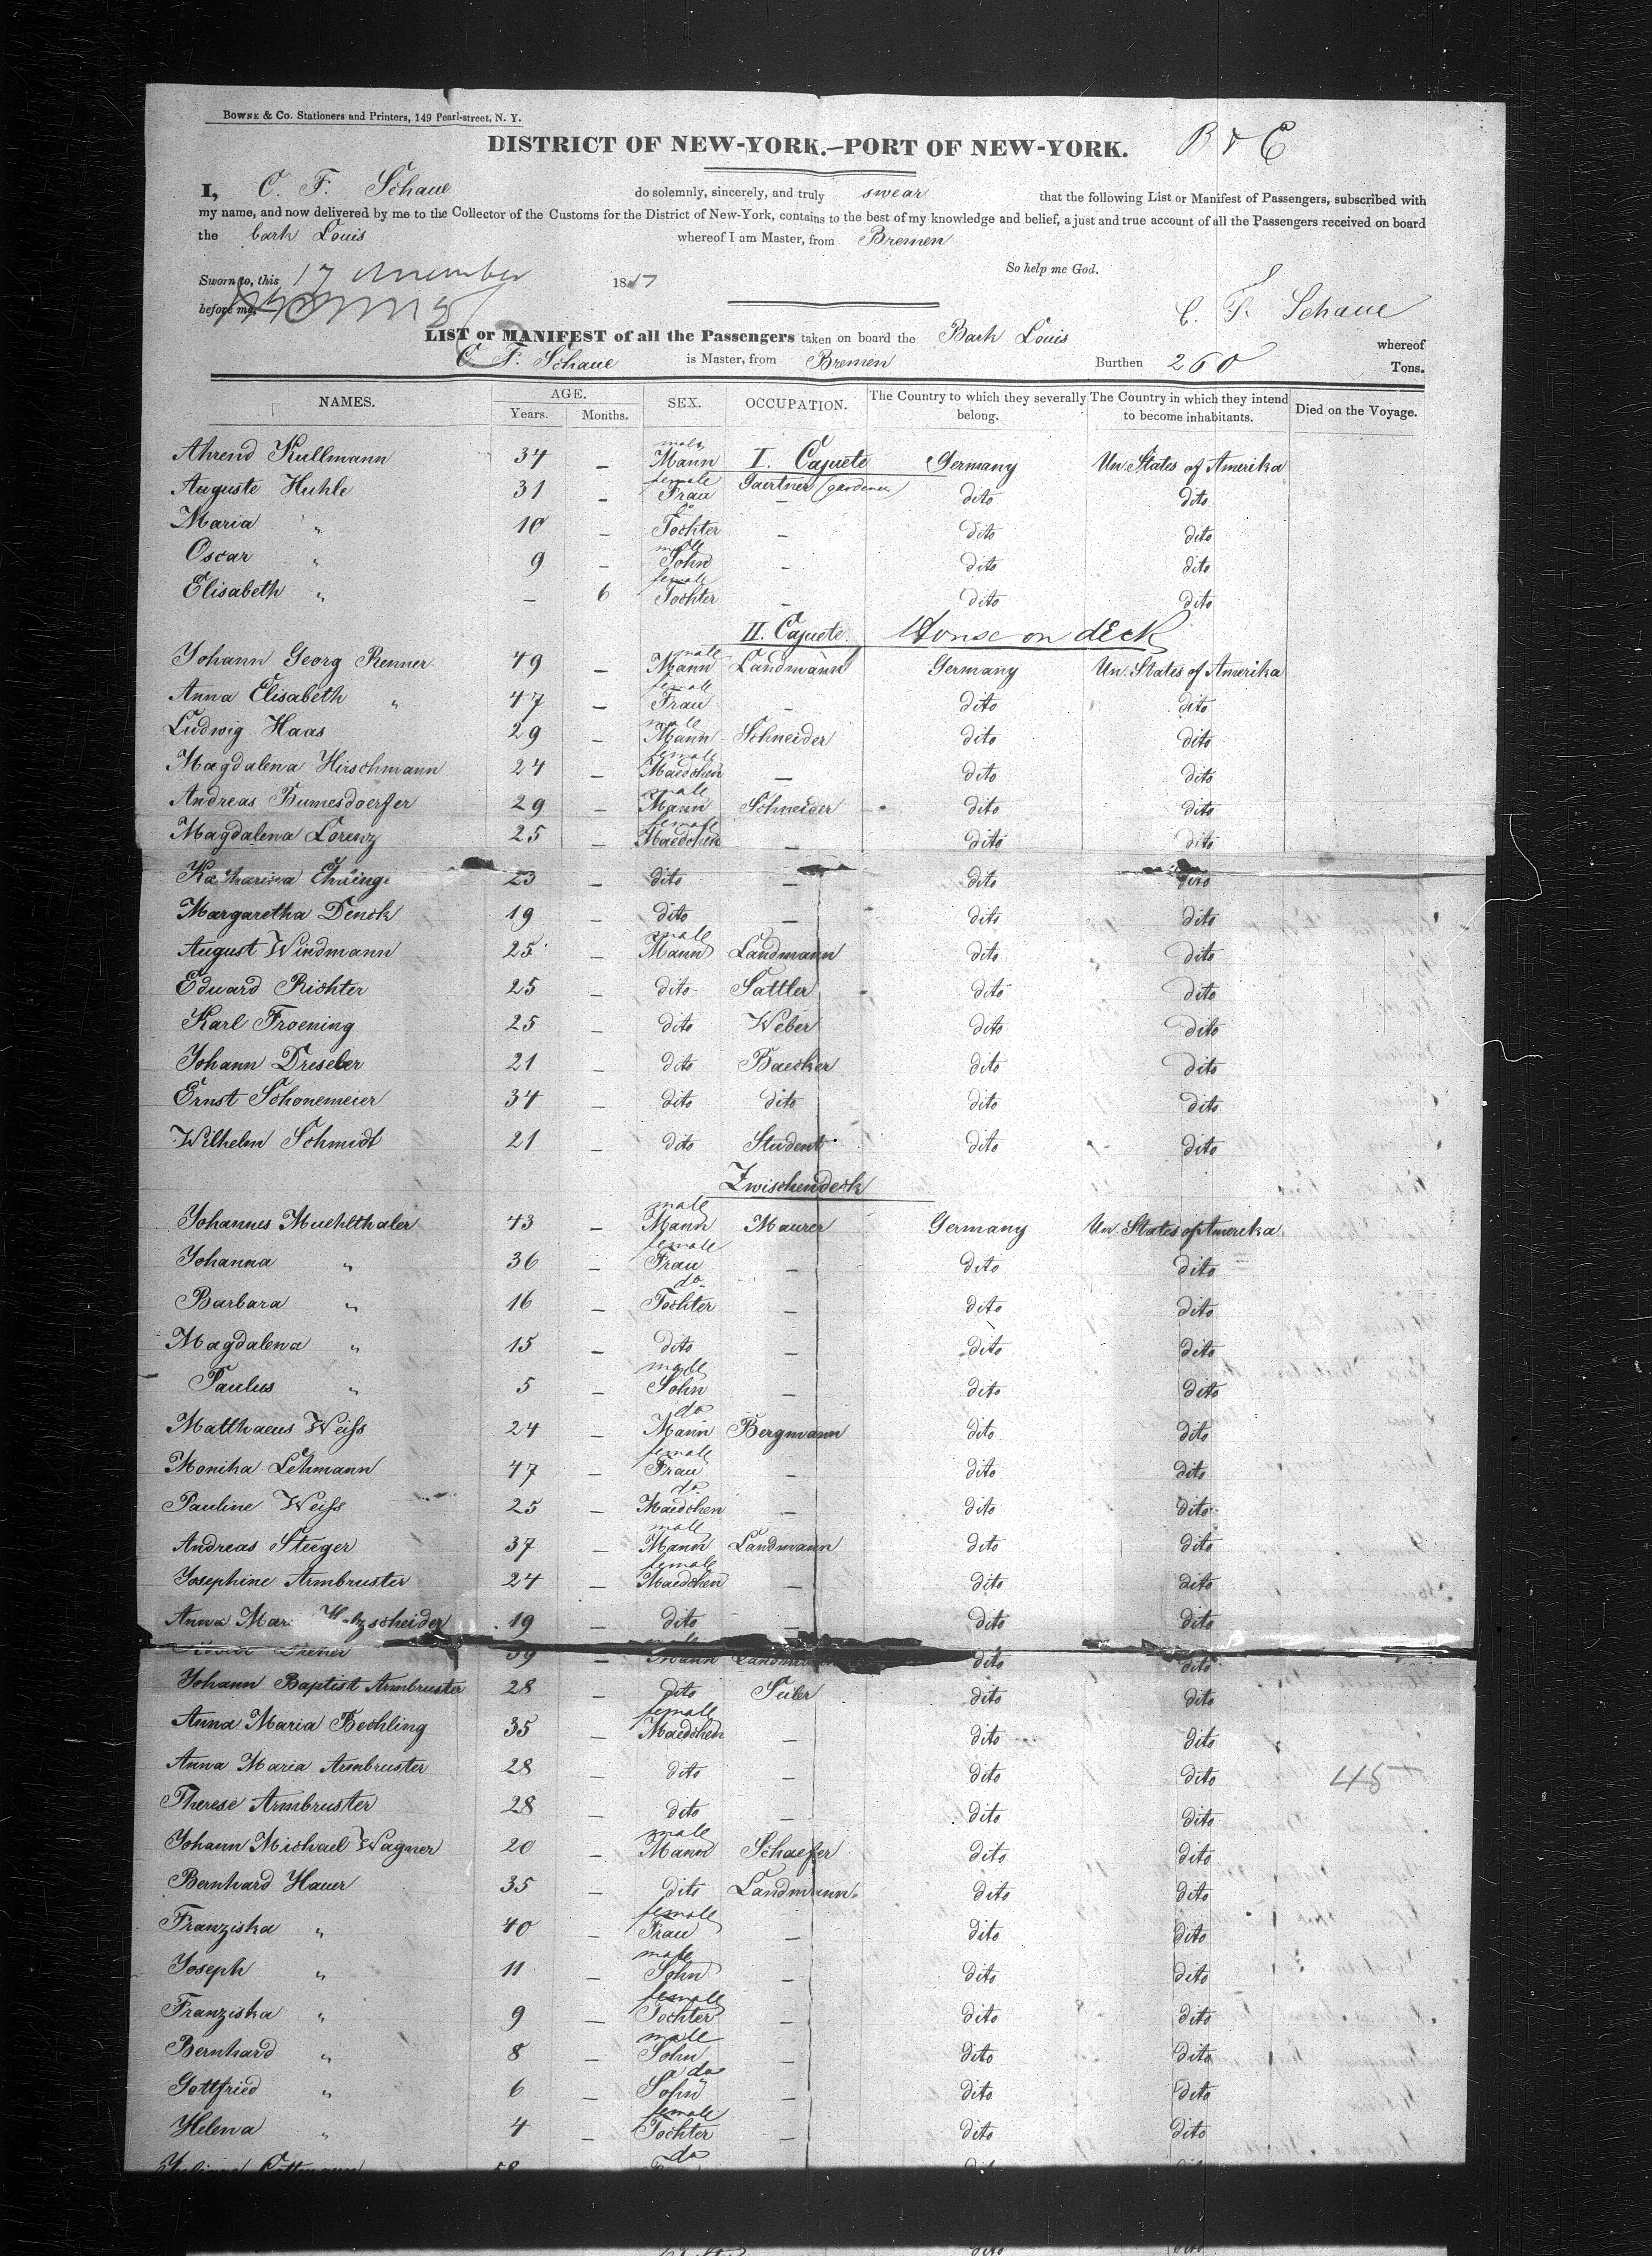 BOWNE & Co. Stationers and Printers, 149 Pearl-street, N. Y.
DISTRICT OF NEW-YORK.—PORT OF NEW-YORK. B & C
I, C. F. Schaue do solemnly, sincerely, and truly swear that the following List or Manifest of Passengers, subscribed with
my name, and now delivered by me to the Collector of the Customs for the District of New-York, contains to the best of my knowledge and belief, a just and true account of all the Passengers received on board
the bark Louis whereof I am Master, from Bremen
So help me God.
Sworn to, this 17 18
before me. C. F. Schaue
LIST or MANIFEST of all the Passengers taken on board the Bark Louis whereof
C. F. Schaue is Master, from Bremen Burthen 260 Tons.
NAMES. AGE. Years. Months. SEX. OCCUPATION. The Country to which they severally belong. The Country in which they intend to become inhabitants. Died on the Voyage.
I. Cajuete
Ahrend Kullmann 34 – male Mann Germany Un. States of Amerika
Gaertner (gardener)
Auguste Huhle 31 – female Frau – dito dito
Maria " 10 – do Tochter – dito dito
Oscar " 9 – male Sohn – dito dito
Elisabeth " – 6 female Tochter – dito dito
II. Cajuete. House on deck
Johann Georg Renner 49 – male Mann Landmann Germany Un. States of Amerika
Anna Elisabeth " 47 – female Frau – dito dito
Ludwig Haas 29 – male Mann Schneider dito dito
Magdalena Hirschmann 24 – female Maedchen – dito dito
Andreas 29 – male Mann Schneider dito dito
Magdalena Lorenz 25 – female Maedchen – dito dito
Katharina 23 – dito – dito dito
Margaretha Denck 19 – dito – dito dito
August Windmann 25 – male Mann Landmann dito dito
Eduard Richter 25 – dito Sattler dito dito
Karl Froening 25 – dito Weber dito dito
Johann Dreseler 21 – dito Baecker dito dito
Ernst Schonemeier 34 – dito dito dito dito
Wilhelm Schmidt 21 – dito Student dito dito
Zwischendeck
Johannes Muehlthaler 43 – male Mann Maurer Germany Un. States of Amerika
Johanna " 36 – female Frau – dito dito
Barbara " 16 – do Tochter – dito dito
Magdalena " 15 – dito – dito dito
Paulus " 5 – male Sohn – dito dito
Matthaeus Weiss 24 – do Mann Bergmann dito dito
Monika Lehmann 47 – female Frau – dito dito
Pauline Weiss 25 – do Maedchen – dito dito
Andreas Steeger 37 – male Mann Landmann dito dito
Josephine Armbruster 24 – female Maedchen – dito dito
Anna 19 – dito – dito dito
39 – Mann dito dito
Johann Baptist Armbruster 28 – dito Seiler dito dito
Anna Maria Bechling 35 – female Maedchen – dito dito
Anna Maria Armbruster 28 – dito – dito dito 45
Therese Armbruster 28 – dito – dito dito
Johann Michael Wagner 20 – male Mann Schaefer dito dito
Bernhard Hauer 35 – dito Landmann dito dito
Franziska " 40 – female Frau – dito dito
Joseph " 11 – male Sohn – dito dito
Franziska " 9 – female Tochter – dito dito
Bernhard " 8 – male Sohn – dito dito
Gottfried " 6 – do Sohn – dito dito
Helena " 4 – female Tochter – dito dito
58 do
dito dito